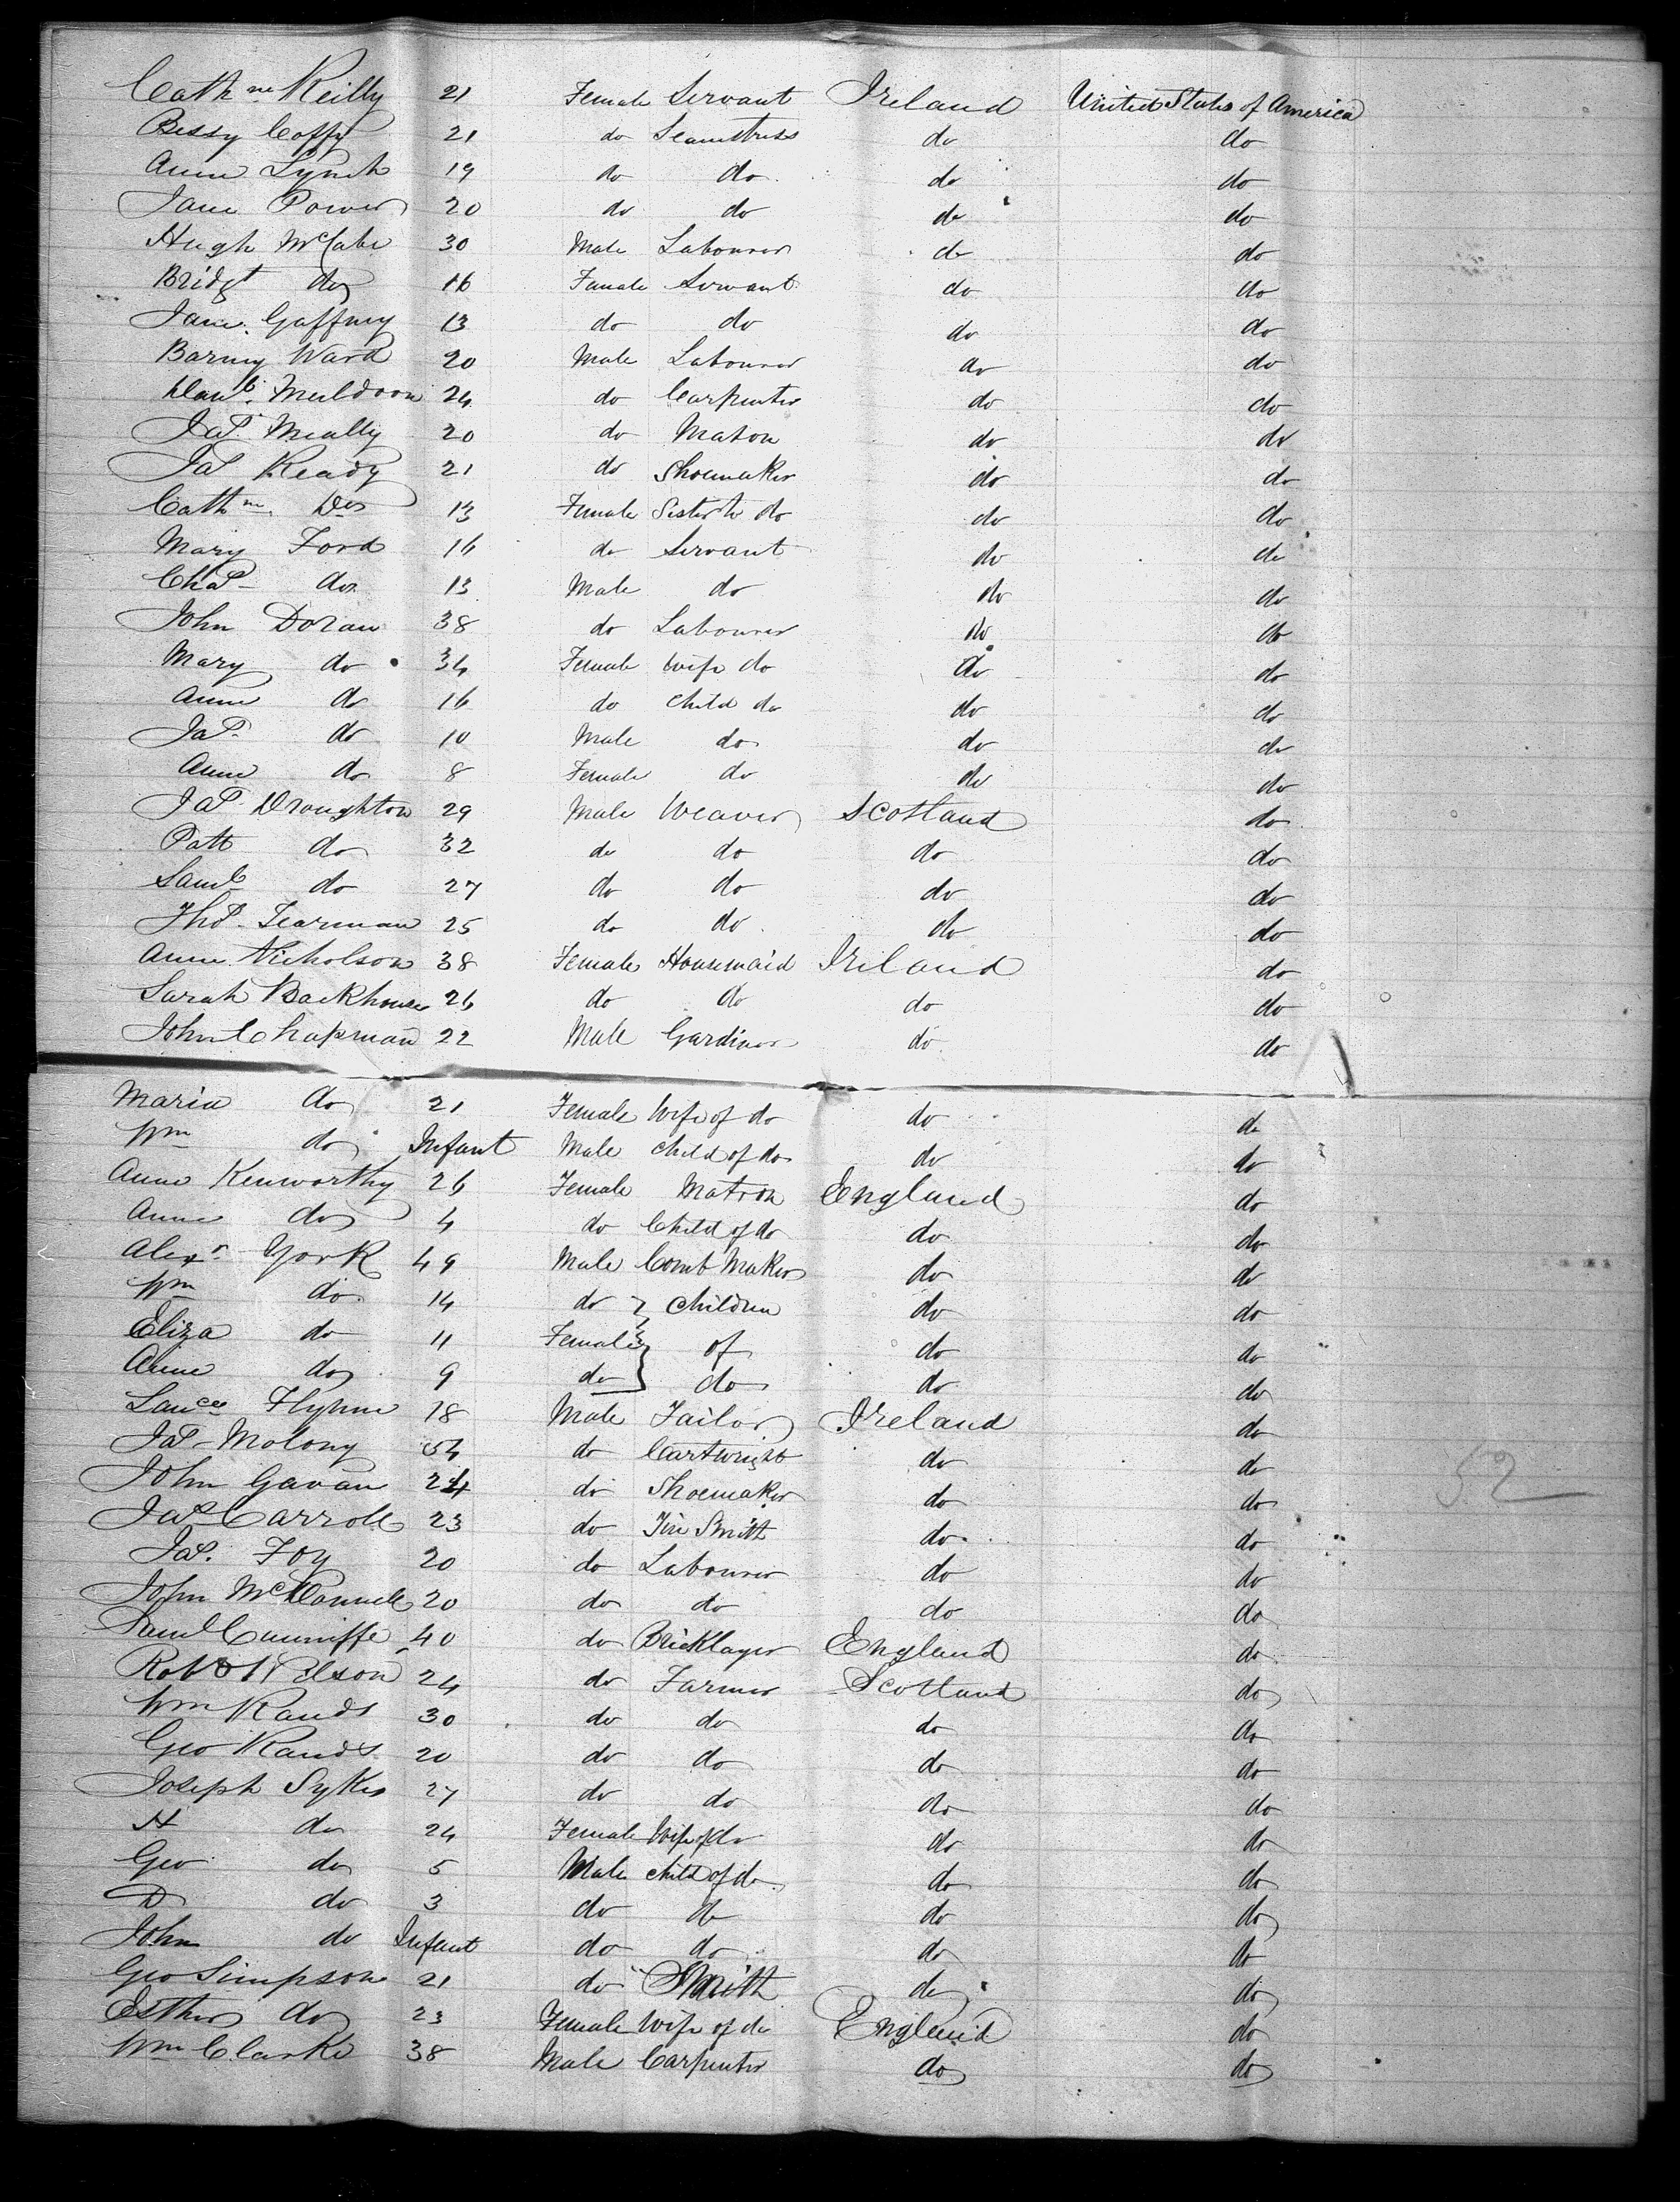 Cathne Reilly 21 Female Servant Ireland United States of America
Bessy Coffy 21 do Seamstress do do
Anne Lynch 19 do do do do
Jane Power 20 do do do do
Hugh McCabe 30 Male Labourer do do
Bridgt do 16 Female Servant do do
Jane Gaffney 13 do do do do
Barney Ward 20 Male Labourer do do
Danl. Muldoon 24 do Carpenter do do
Jas. Meally 20 do Mason do do
Jas Ready 21 do Shoemaker do do
Cathne. Do 13 Female Sister to do do do
Mary Ford 16 do Servant do do
Chas do 13 Male do do do
John Doran 38 do Labourer do do
Mary do 34 Female Wife do do do
Anne do 16 do Child do do do
Jas. do 10 Male do do do
Anne do 8 Female do do do
Jas. Droughton 29 Male Weaver Scotland do
Patt do 32 do do do do
Saml do 27 do do do do
Thos. Tearman 25 do do do do
Anne Nicholson 38 Female Housemaid Ireland do
Sarah Backhouse 26 do do do do
John Chapman 22 Male Gardiner do do
Maria do 21 Female Wife of do do do
Wm do Infant Male Child of do do do
Anne Kenworthy 26 Female Matron England do
Anne do 4 do Child of do do do
Alexr. York 49 Male Comb Maker do do
Wm do 14 do } Children do do
Eliza do 11 Female } of do do
Anne do 9 do } do do do
Lance Flynn 18 Male Tailor Ireland do
Jas Molony 54 do Cartwright do do
John Gavan 24 do Shoemaker do do
Jas Carroll 23 do Tin Smith do do
Jas. Foy 20 do Labourer do do
John McDonnell 20 do do do do
Saml Cunniffe 40 do Bricklayer England do
Robt Wilson 24 do Farmer Scotland do
Wm Rands 30 do do do do
Geo Rands 20 do do do do
Joseph Sykes 27 do do do do
H do 24 Female Wife of do do do
Geo do 5 Male child of do do do
D do 3 do do do do
John do Infant do do do do
Geo Simpson 21 do Smith do do
Esther do 23 Female Wife of do England do
Wm Clarke 38 Male Carpenter do do
52